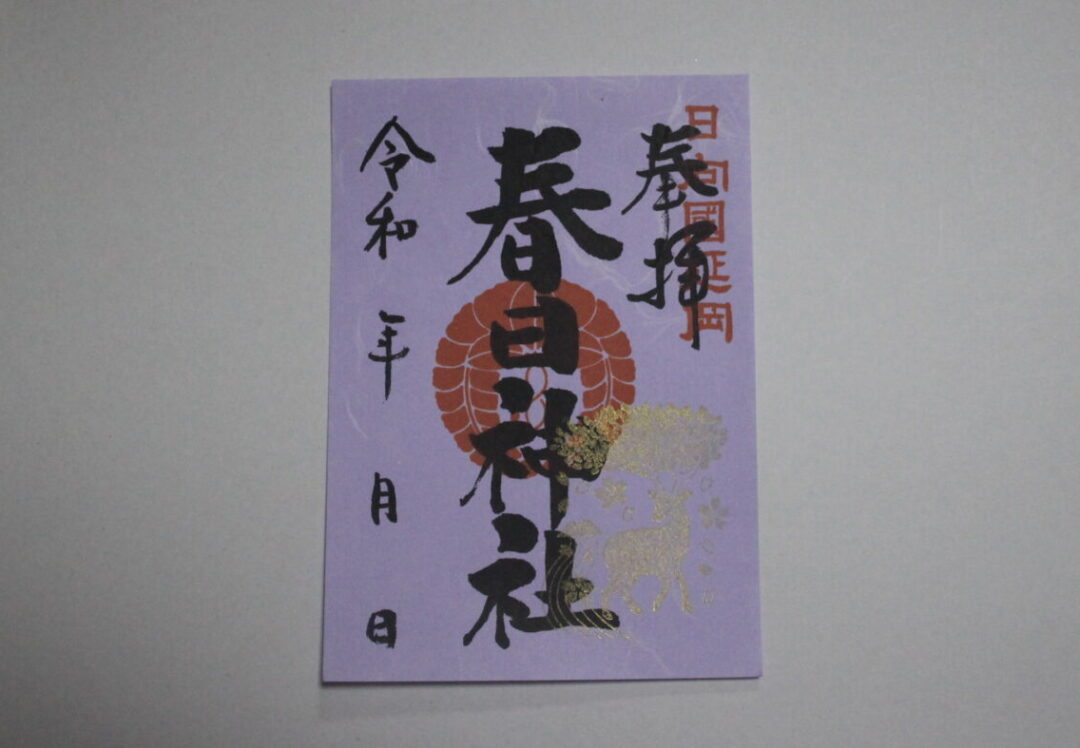 日向國延岡
奉拝
春日神社
令和 年 月 日